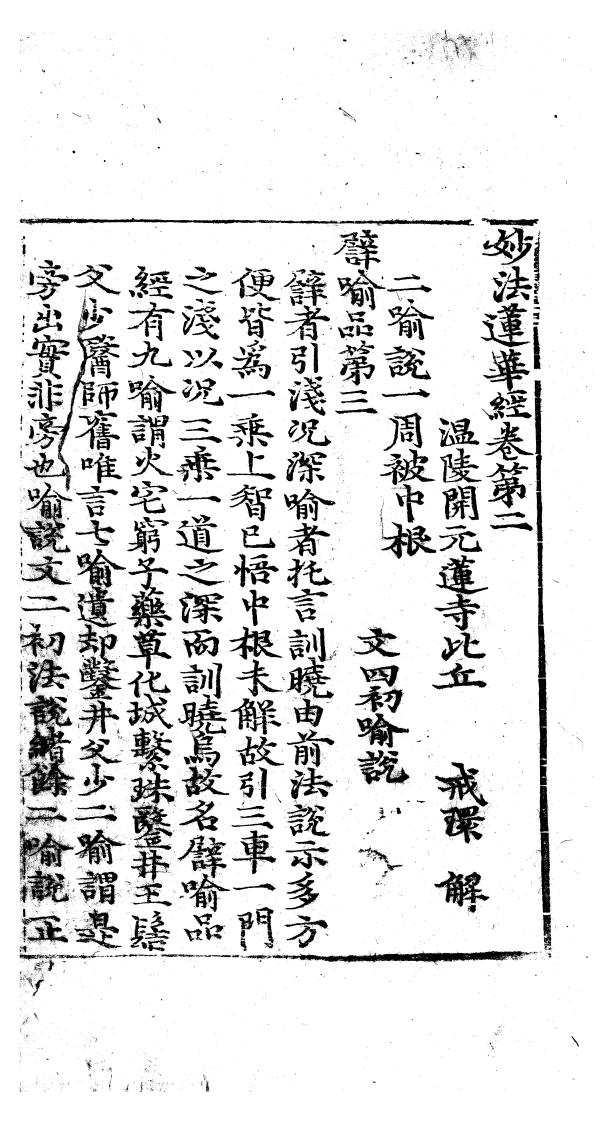 妙法蓮華經卷第二
温陵開元蓮寺比丘 戒環 解
二喻說一周被中根 文四初喻說
譬喻品第三
譬者引淺况深喻者托言訓曉由前法說示多方
便皆爲一乘上智已悟中根未解故引三車一門
之淺以况三乘一道之深而訓曉焉故名譬喻品
經有九喻謂火宅窮子藥草化城繫珠鑿井王髻
父少醫師舊唯言七喻遺却鑿井父少二喻謂是
旁出實非旁也喻說文二初法說緖餘二喻說正